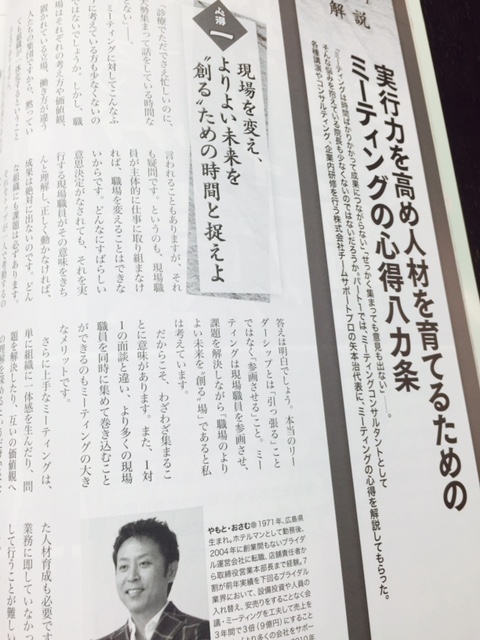 解説
実行力を高め人材を育てるための
ミーティングの心得八カ条
「ミーティングは時間ばかりかかって成果につながらない」「せっかく集まっても意見も出ない」――。
そんな悩みを抱えている院長も少なくないのではないだろうか。パート1では、ミーティングコンサルタントとして
各種講演やコンサルティング、企業内研修を行う株式会社チームサポートプロの矢本治代表に、ミーティングの心得を解説してもらった。
心得
一
現場を変え、
よりよい未来を
“創る”ための時間と捉えよ
「診療でただでさえ忙しいのに、
大勢集まって話をしている時間な
どない――」
ミーティングに対してこんなふ
うに考えている方も少なくないの
ではないでしょうか。しかし、職
場はそれぞれの考え方や価値観、
置かれている立場、働き方が違う
人たちの集団ですから、黙ってい
ても組織が一体化するということ
言われることもありますが、それ
も疑問です。というのも、現場職
員が主体的に仕事に取り組まなけ
れば、職場を変えることはできな
いからです。どんなにすばらしい
意思決定がなされても、それを実
行する現場職員がその意味をきち
んと理解し、正しく動かなければ、
成果は絶対に出ないのです。どん
な組織にも課題は必ずあります。
答えは明白でしょう。本当のリー
ダーシップとは「引っ張る」こと
ではなく「参画させる」こと。ミー
ティングは現場職員を参画させ、
課題を解決しながら「職場のより
よい未来を“創る”場」であると私
は考えています。
だからこそ、わざわざ集まるこ
とに意味があります。また、1対
1の面談と違い、より多くの現場
職員を同時に集めて巻き込むこと
ができるのもミーティングの大き
なメリットです。
さらに上手なミーティングは、
単に組織に一体感を生んだり、問
題を解決したり、互いの価値観へ
た人材育成も必要です
業務に即していなかっ
して行うことが難しい
やもと・おさむ●1971年、広島県
生まれ。ホテルマンとして勤務後、
2004年に創業間もないブライダル
運営会社に転職。店舗責任者か
ら取締役営業本部長まで経験。7
割が前年実績を下回るブライダル
業界において、設備投資や人員の
入れ替え、安売りをすることなく会
議・ミーティングを工夫して売上を
3年間で3倍（9億円）にすること